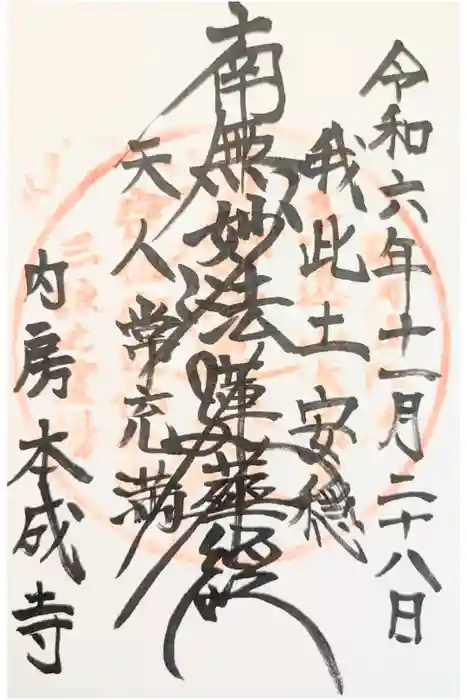 令和六年十一月二十八日
我此土安穏
南無妙法蓮華経
天人常充満
内房本成寺